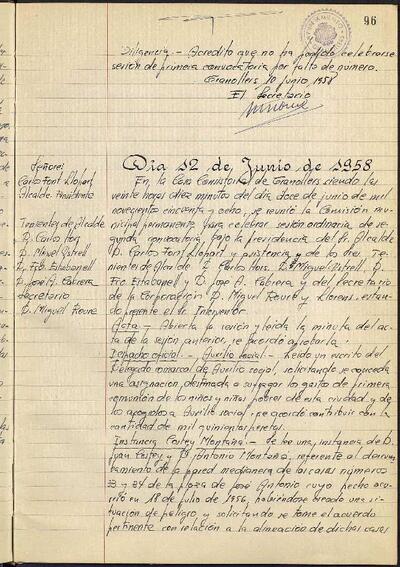 96
Diligencia.- Acredito que no ha podido celebrarse
sesión de primera convocatoria por falta de número.
Granollers 10 Junio 1958
El Secretario
Señores
Carlos Font Llopart
Alcalde Presidente
Tenientes de Alcalde
D. Carlos Hors
D. Miguel Vatrell
D. Fco Estabanell
D. José A. Cabrera
Secretario
D. Miguel Roure
Dia 12 de Junio de 1958
En la Casa Consistorial de Granollers siendo las
veinte horas diez minuto del dia doce de junio de mil
novecientos cincuenta y ocho, se reunió la Comisión mu-
nicipal permanente para celebrar sesión ordinaria de se-
gunda convocatoria, bajo la presidencia del Sr. Alcalde
D. Carlos Font Llopart y asistencia de los tres Te-
nientes de Alcalde D. Carlos Hors, D. Miguel Vatrell, D.
Fco Estabanell y D. José A. Cabrera y del Secretario
de la Corporación D. Miguel Roure y Llorens, estan-
do presente el Sr. Interventor.
Acta - Abierta la sesión y leida la minuta del ac-
ta de la sesión anterior, se acordó aprobarla.
Despacho oficial.- Auxilio Social.- Leido un escrito del
Delegado comarcal de Auxilio Social, solicitando se conceda
una asignación, destinada a sufragar los gastos de primera
comunión de los niños y niñas pobres de esta ciudad y de
los acogidos a Auxilio Social, se acordó contribuir con la
cantidad de mil quinientas pesetas.
Instancia Costey Montaña.- Se lee una instancia de D.
Juan Costey y D. Antonio Montaña, referente al derrum-
bamiento de la pared medianera de las casas números
33 y 34 de la plaza de José Antonio cuyo hecho ocu-
rrió en 18 de Julio de 1956, habiéndose creado una si-
tuación de peligro, y solicitando se tome el acuerdo
pertinente con relación a la alineación de dichas casas